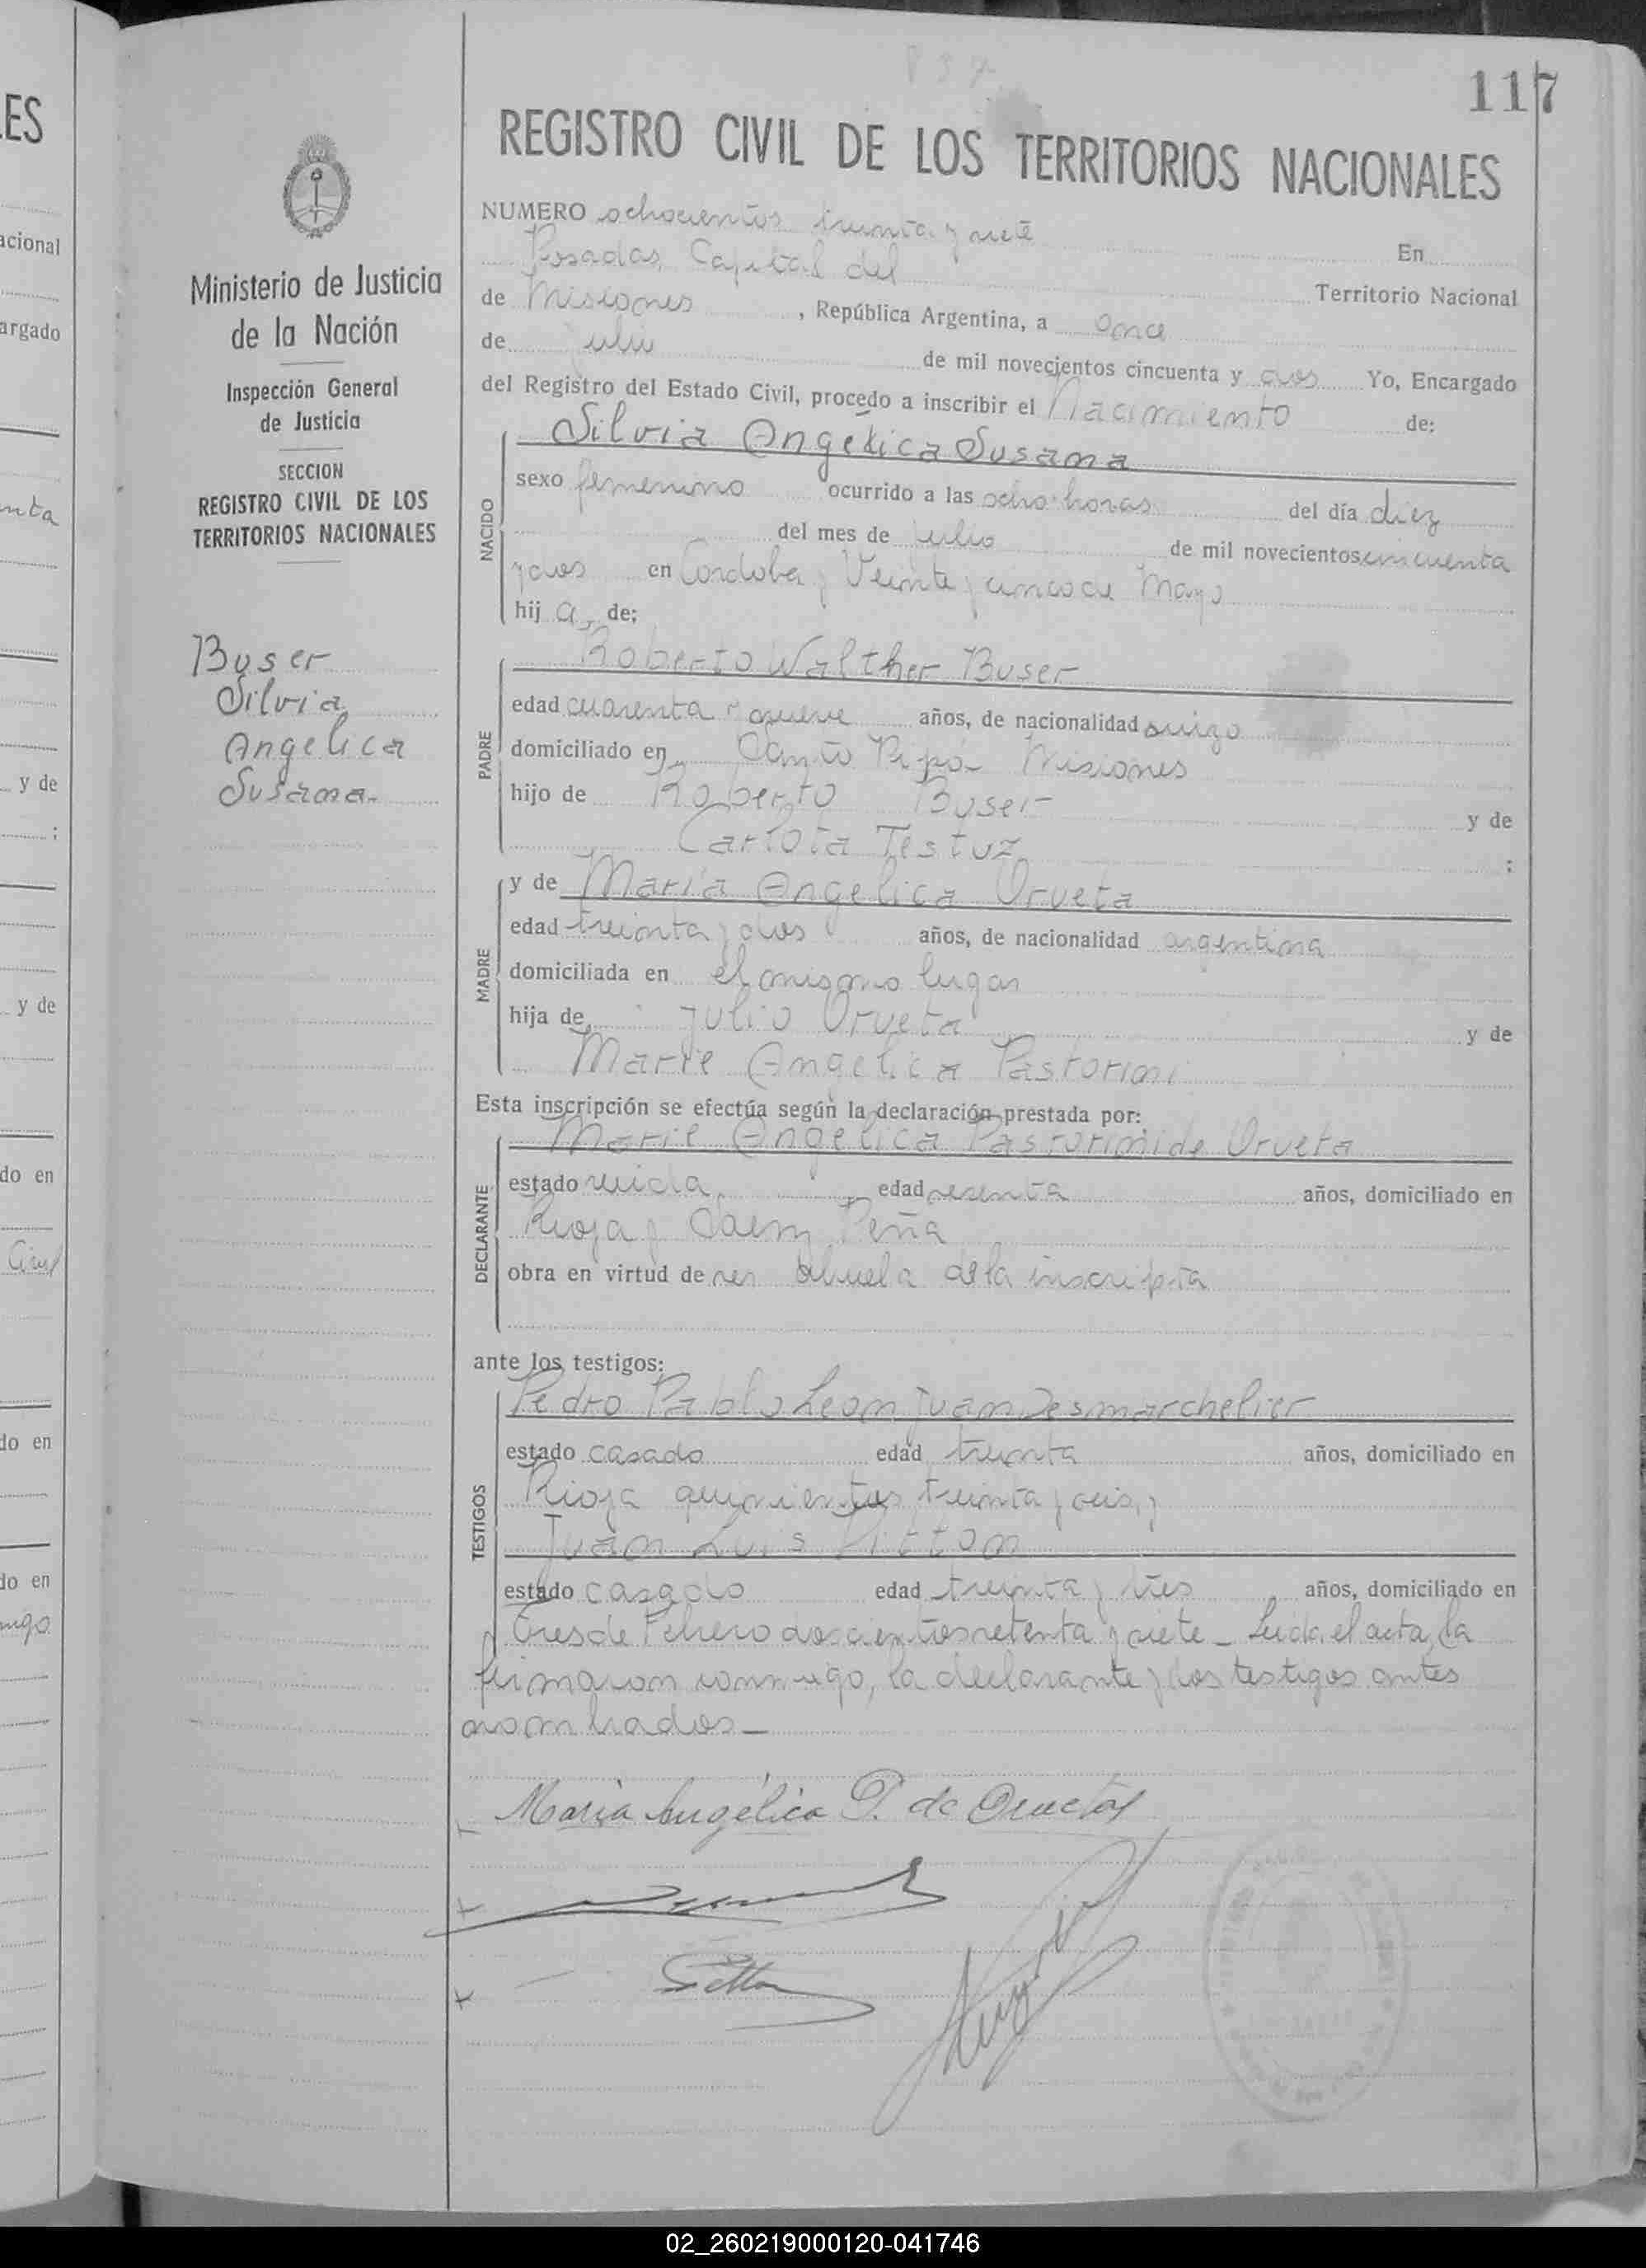 837
117
REGISTRO CIVIL DE LOS TERRITORIOS NACIONALES
NUMERO ochocientos treinta y siete En
Posadas, Capital del Territorio Nacional
de Misiones, República Argentina, a once
de julio de mil novecientos cincuenta y dos Yo, Encargado
del Registro del Estado Civil, procedo a inscribir el Nacimiento de:
NACIDO
Silvia Angélica Susana
sexo femenino ocurrido a las ocho horas del día diez
del mes de julio de mil novecientos cincuenta
y dos en Córdoba y Veinte y cinco de Mayo
hij a, de:
PADRE
Roberto Walther Buser
edad cuarenta y nueve años, de nacionalidad suizo
domiciliado en Santo Pipó - Misiones
hijo de Roberto Buser y de
Carlota Testuz :
MADRE
y de María Angelica Orueta
edad treinta y dos años, de nacionalidad argentina
domiciliada en el mismo lugar
hija de Julio Orueta y de
Marie Angelica Pastorini
Esta inscripción se efectúa según la declaración prestada por:
DECLARANTE
Marie Angelica Pastorini de Orueta
estado viuda, edad sesenta años, domiciliado en
Rioja y Saenz Peña
obra en virtud de ser abuela de la inscripta
ante los testigos:
TESTIGOS
Pedro Pablo Leon Juan Desmarchelier
estado casado edad treinta años, domiciliado en
Rioja quinientos treinta y seis, y
Juan Luis Pitton
estado casado edad treinta y tres años, domiciliado en
Tres de Febrero doscientos setenta y siete - Leida el acta, la
firmaron conmigo, la declarante y los testigos antes
nombrados -
María Angélica P. de Orueta
Pitton
Ministerio de Justicia
de la Nación
Inspección General
de Justicia
SECCION
REGISTRO CIVIL DE LOS
TERRITORIOS NACIONALES
Buser
Silvia
Angelica
Susana.
ES
acional
argado
y de
:
y de
do en
do en
do en
02_260219000120-041746